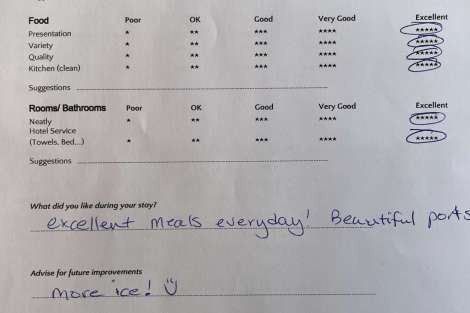 Food Poor OK Good Very Good Excellent
Presentation * ** *** **** *****
Variety * ** *** **** *****
Quality * ** *** **** *****
Kitchen (clean) * ** *** **** *****
Suggestions
Rooms/ Bathrooms Poor OK Good Very Good Excellent
Neatly * ** *** **** *****
Hotel Service
(Towels, Bed...) * ** *** **** *****
Suggestions
What did you like during your stay?
excellent meals everyday! Beautiful ports
Advise for future improvements
more ice! ☺